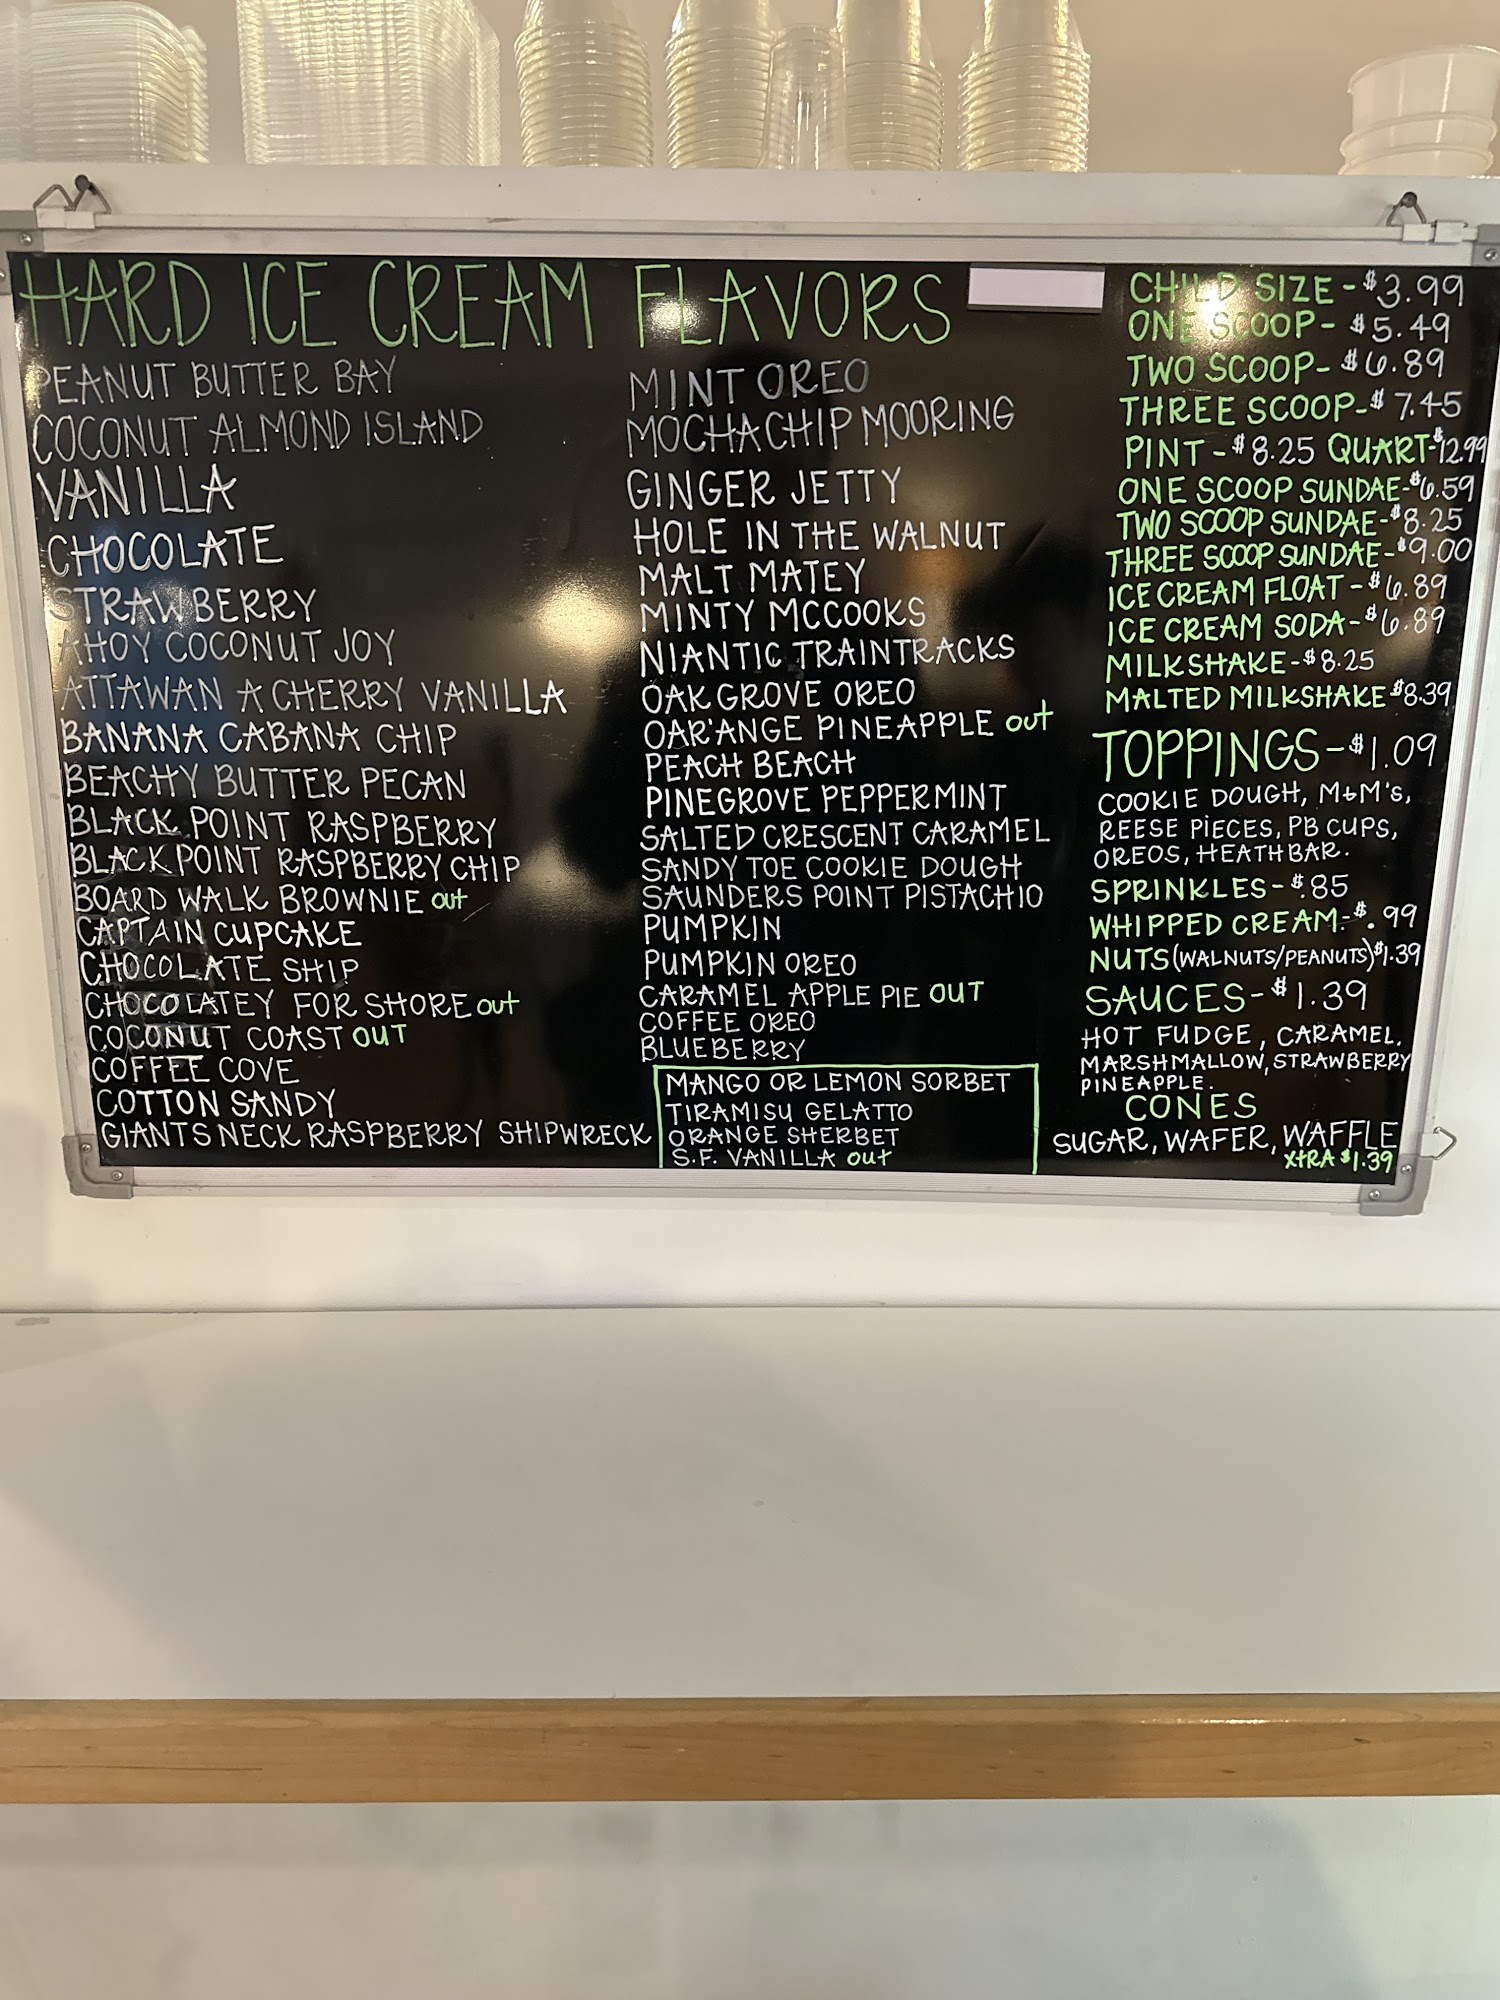 HARD ICE CREAM FLAVORS
PEANUT BUTTER BAY
COCONUT ALMOND ISLAND
VANILLA
CHOCOLATE
STRAWBERRY
AHOY COCONUT JOY
ATTAWAN A CHERRY VANILLA
BANANA CABANA CHIP
BEACHY BUTTER PECAN
BLACK POINT RASPBERRY
BLACK POINT RASPBERRY CHIP
BOARD WALK BROWNIE out
CAPTAIN CUPCAKE
CHOCOLATE SHIP
CHOCOLATEY FOR SHORE out
COCONUT COAST OUT
COFFEE COVE
COTTON SANDY
GIANTS NECK RASPBERRY SHIPWRECK
MINT OREO
MOCHACHIP MOORING
GINGER JETTY
HOLE IN THE WALNUT
MALT MATEY
MINTY MCCOOKS
NIANTIC TRAINTRACKS
OAK GROVE OREO
OAR'ANGE PINEAPPLE out
PEACH BEACH
PINEGROVE PEPPERMINT
SALTED CRESCENT CARAMEL
SANDY TOE COOKIE DOUGH
SAUNDERS POINT PISTACHIO
PUMPKIN
PUMPKIN OREO
CARAMEL APPLE PIE OUT
COFFEE OREO
BLUEBERRY
MANGO OR LEMON SORBET
TIRAMISU GELATTO
ORANGE SHERBET
S.F. VANILLA out
CHILD SIZE - $3.99
ONE SCOOP - $5.49
TWO SCOOP - $6.89
THREE SCOOP - $7.45
PINT - $8.25 QUART - $12.99
ONE SCOOP SUNDAE - $6.59
TWO SCOOP SUNDAE - $8.25
THREE SCOOP SUNDAE - $9.00
ICE CREAM FLOAT - $6.89
ICE CREAM SODA - $6.89
MILKSHAKE - $8.25
MALTED MILKSHAKE $8.39
TOPPINGS - $1.09
COOKIE DOUGH, M&M'S,
REESE PIECES, PB CUPS,
OREOS, HEATHBAR.
SPRINKLES - $.85
WHIPPED CREAM - $.99
NUTS (WALNUTS/PEANUTS) $1.39
SAUCES - $1.39
HOT FUDGE, CARAMEL,
MARSHMALLOW, STRAWBERRY
PINEAPPLE.
CONES
SUGAR, WAFER, WAFFLE
XTRA $1.39